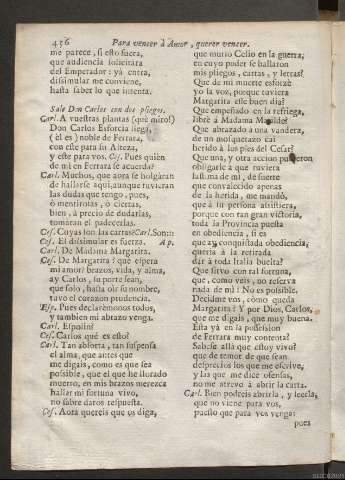 456 Para vencer à Amor, querer vencer.
me parece, si esto fuera,
que audiencia solicitara
del Emperador: yà entra,
dissimular me conviene,
hasta saber lo que intenta.
Sale Don Carlos con dos pliegos.
Carl. A vuestras plantas (què miro!)
Don Carlos Esforcia llega,
(èl es) noble de Ferrara,
con este para su Alteza,
y este para vos. Ces. Pues quièn
de mi en Ferrara se acuerda?
Carl. Muchos, que aora se holgàran
de hallarse aqui, aunque tuvieran
las dudas que tengo, pues,
ò mentirosas, ò ciertas,
bien, à precio de dudarlas,
tomàran el padecerlas.
Ces. Cuyas son las cartas? Carl. Son::
Ces. El dissimular es fuerza. Ap.
Carl. De Madama Margarita.
Ces. De Margarita? què espera
mi amor? brazos, vida, y alma,
ay Carlos, su porte sean,
que solo, hasta oìr su nombre,
tuvo el corazon prudencia.
Esp. Pues declaremonos todos,
y tambien mi abrazo venga.
Carl. Espolin?
Ces. Carlos què es esto?
Carl. Tan absorta, tan suspensa
el alma, que antes que
me digais, como es que sea
possible, que el que he llorado
muerto, en mis brazos merezca
hallar mi fortuna vivo,
no sabrè daros respuesta.
Ces. Aora quereis que os diga,
que murio Celio en la guerra,
en cuyo poder se hallaron
mis pliegos, cartas, y letras?
Que de mi muerte esforzè
yo la voz, porque tuviera
Margarita esse buen dia?
Que empeñado en la refriega,
librè à Madama Matilde?
Que abrazado à una vandera,
de un mosquetazo caì
herido à los pies del Cesar?
Que una, y otra accion pudieron
obligarle à que tuviera
lastima de mì, de suerte
que convalecido apenas
de la herida, me mandò,
que à su persona assistiera,
porque con tan gran victoria,
toda la Provincia puesta
en obediencia, si es
que ay conquistada obediencia,
queria à la retirada
dàr à toda Italia buelta?
Que sirvo con tal fortuna,
que, como veis, no reserva
nada de mì? No es possible.
Decidme vos, còmo queda
Margarita? Y por Dios, Carlos,
que me digais, que muy buena.
Està yà en la possession
de Ferrara muy contenta?
Sabese allà que estoy vivo?
que de temor de que sean
desprecios los que me escrive,
y las que me dice ofensas,
no me atrevo à abrir la carta.
Carl. Bien podreis abrirla, y leerla,
que no viene para vos,
puesto que para vos venga:
pues